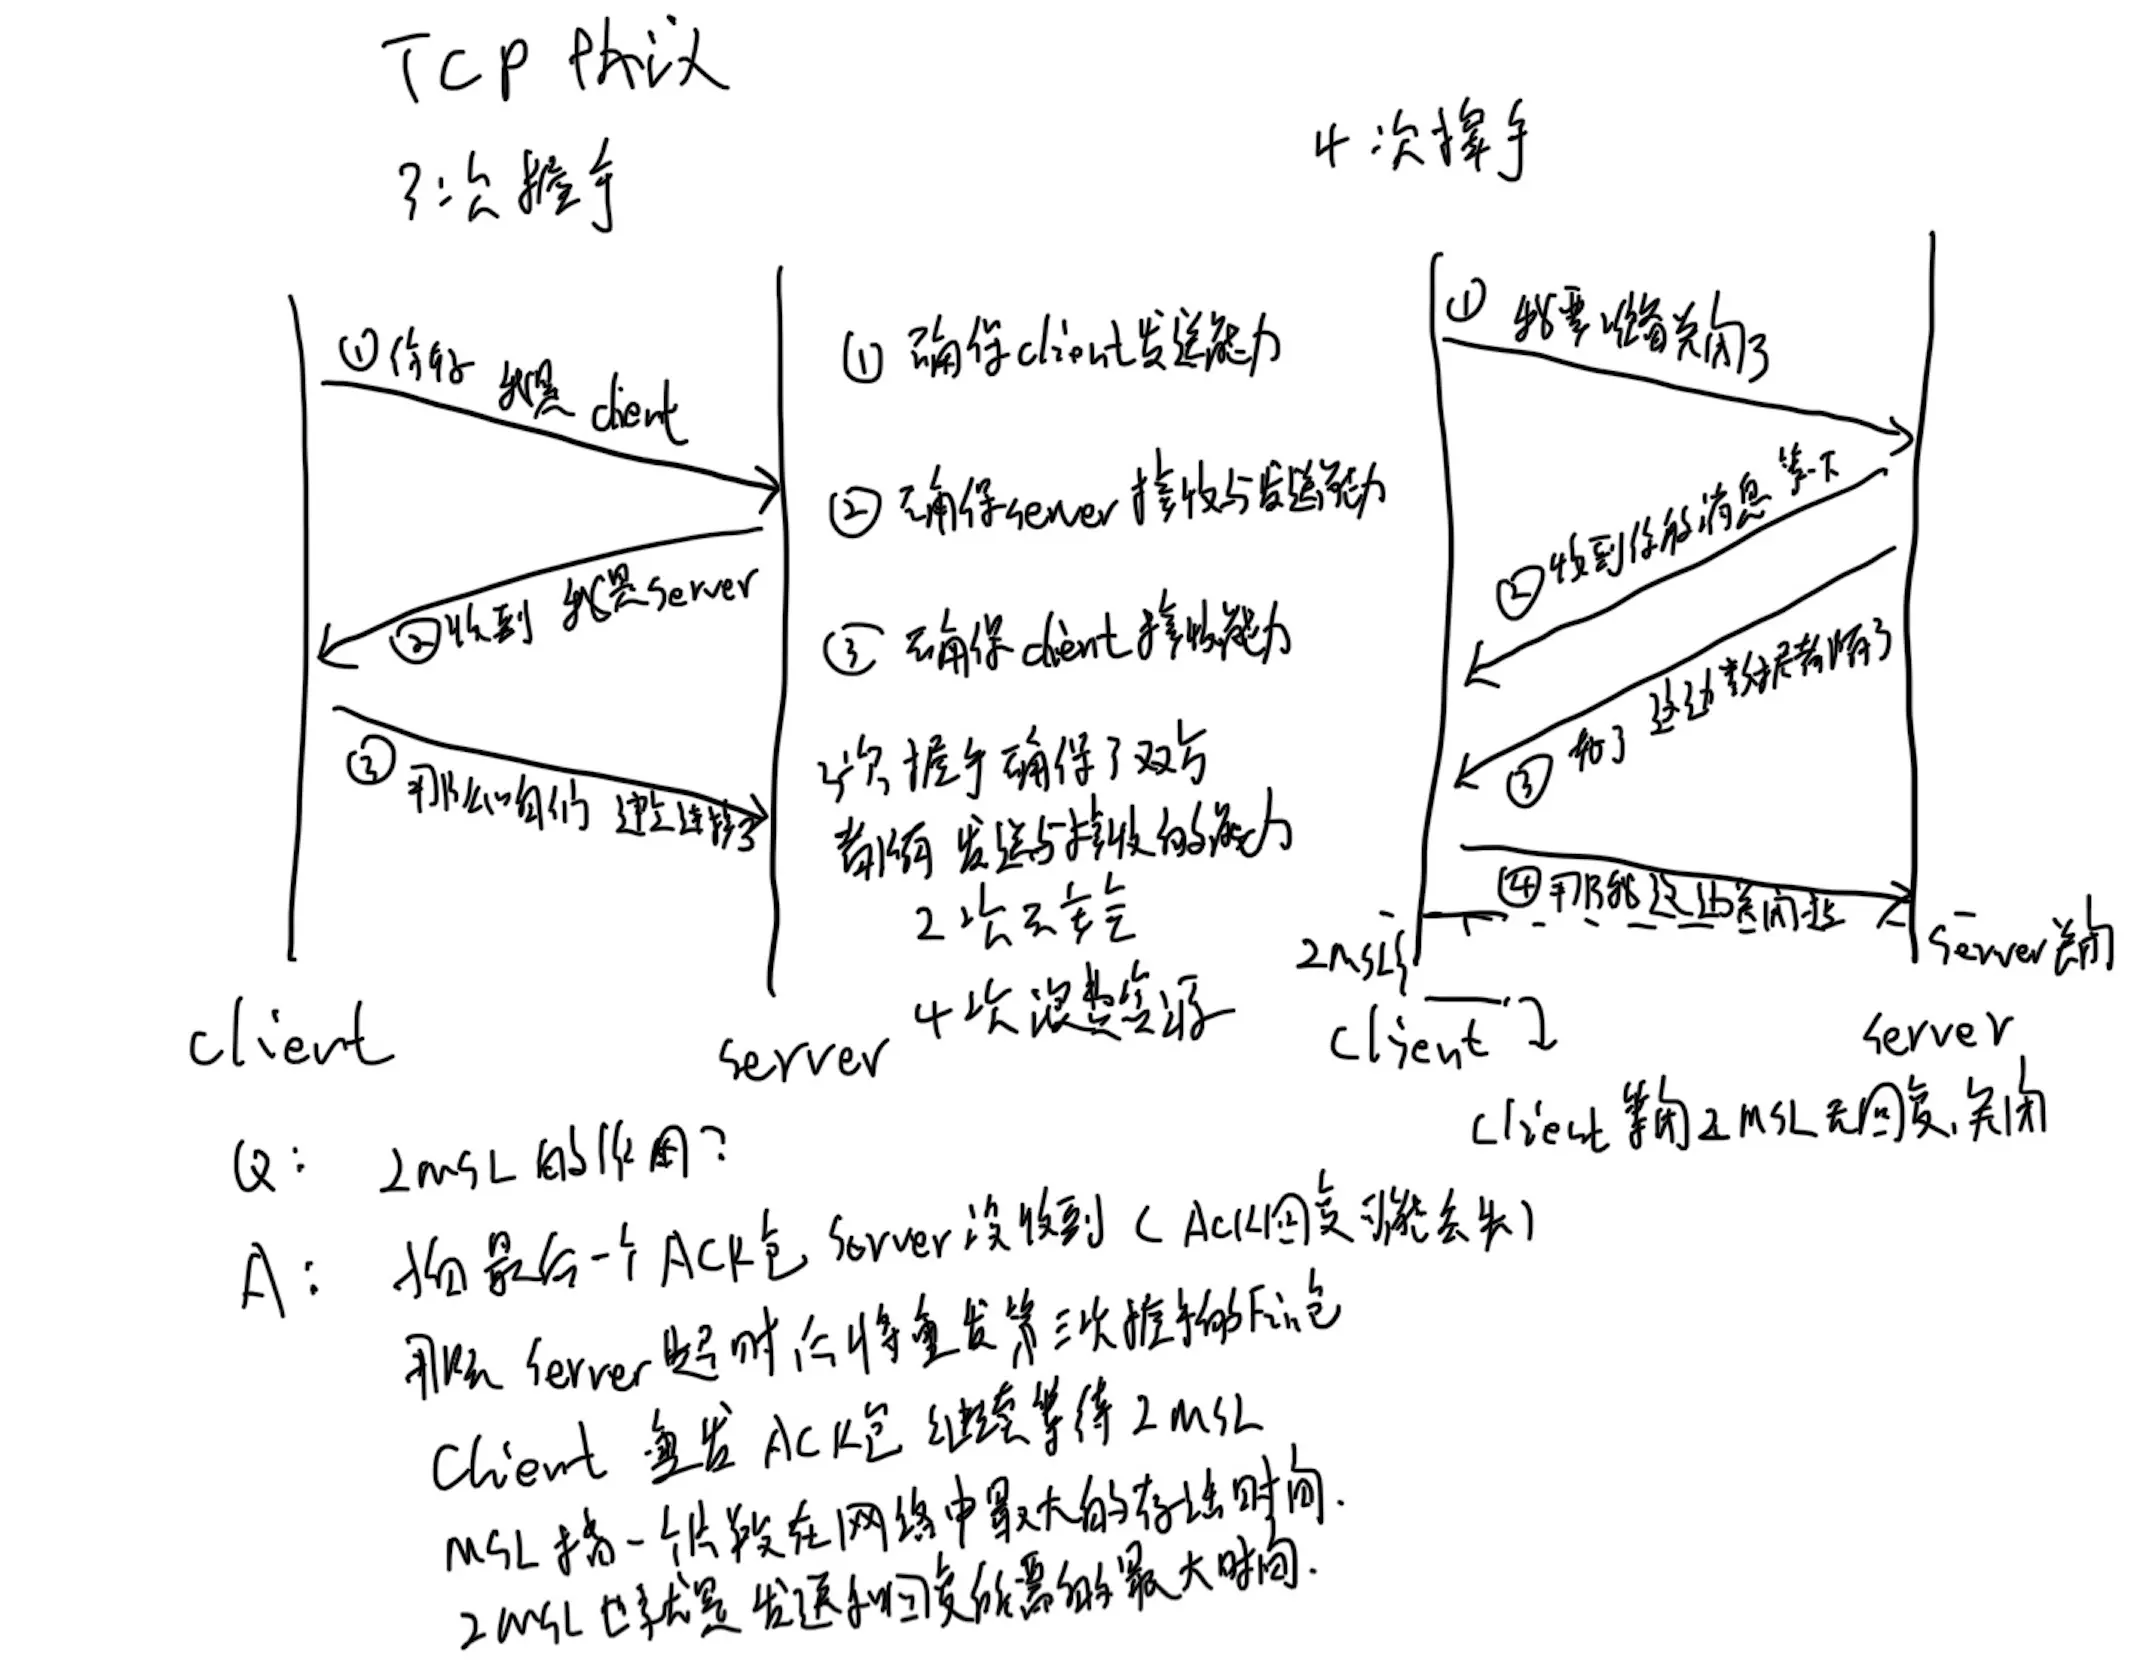 TCP 协议
3次握手
①你好 我是 client
②收到 我是server
③那么咱们 建立连接了
client
server
①确保client发送能力
②确保server 接收与发送能力
③确保client接收能力
3次握手确保了双方
都有发送与接收的能力
2次不幸
4次浪费资源
4次挥手
① 我要准备关闭了
②收到你的消息 等一下
③ 好了 这边数据都有了
④那我这边关闭
2MSL
server关闭
client
server
client等的2MSL无回复,关闭
Q: 2MSL的作用?
A: 最后一个ACK包 server没收到(ACK回复可能丢失)
那么server超时后将重发第三次握手的Fin包
client 重发ACK包 继续等待2MSL
MSL指一个片段在网络中最大的存活时间.
2MSL也就是发送和回复所需的最大时间.